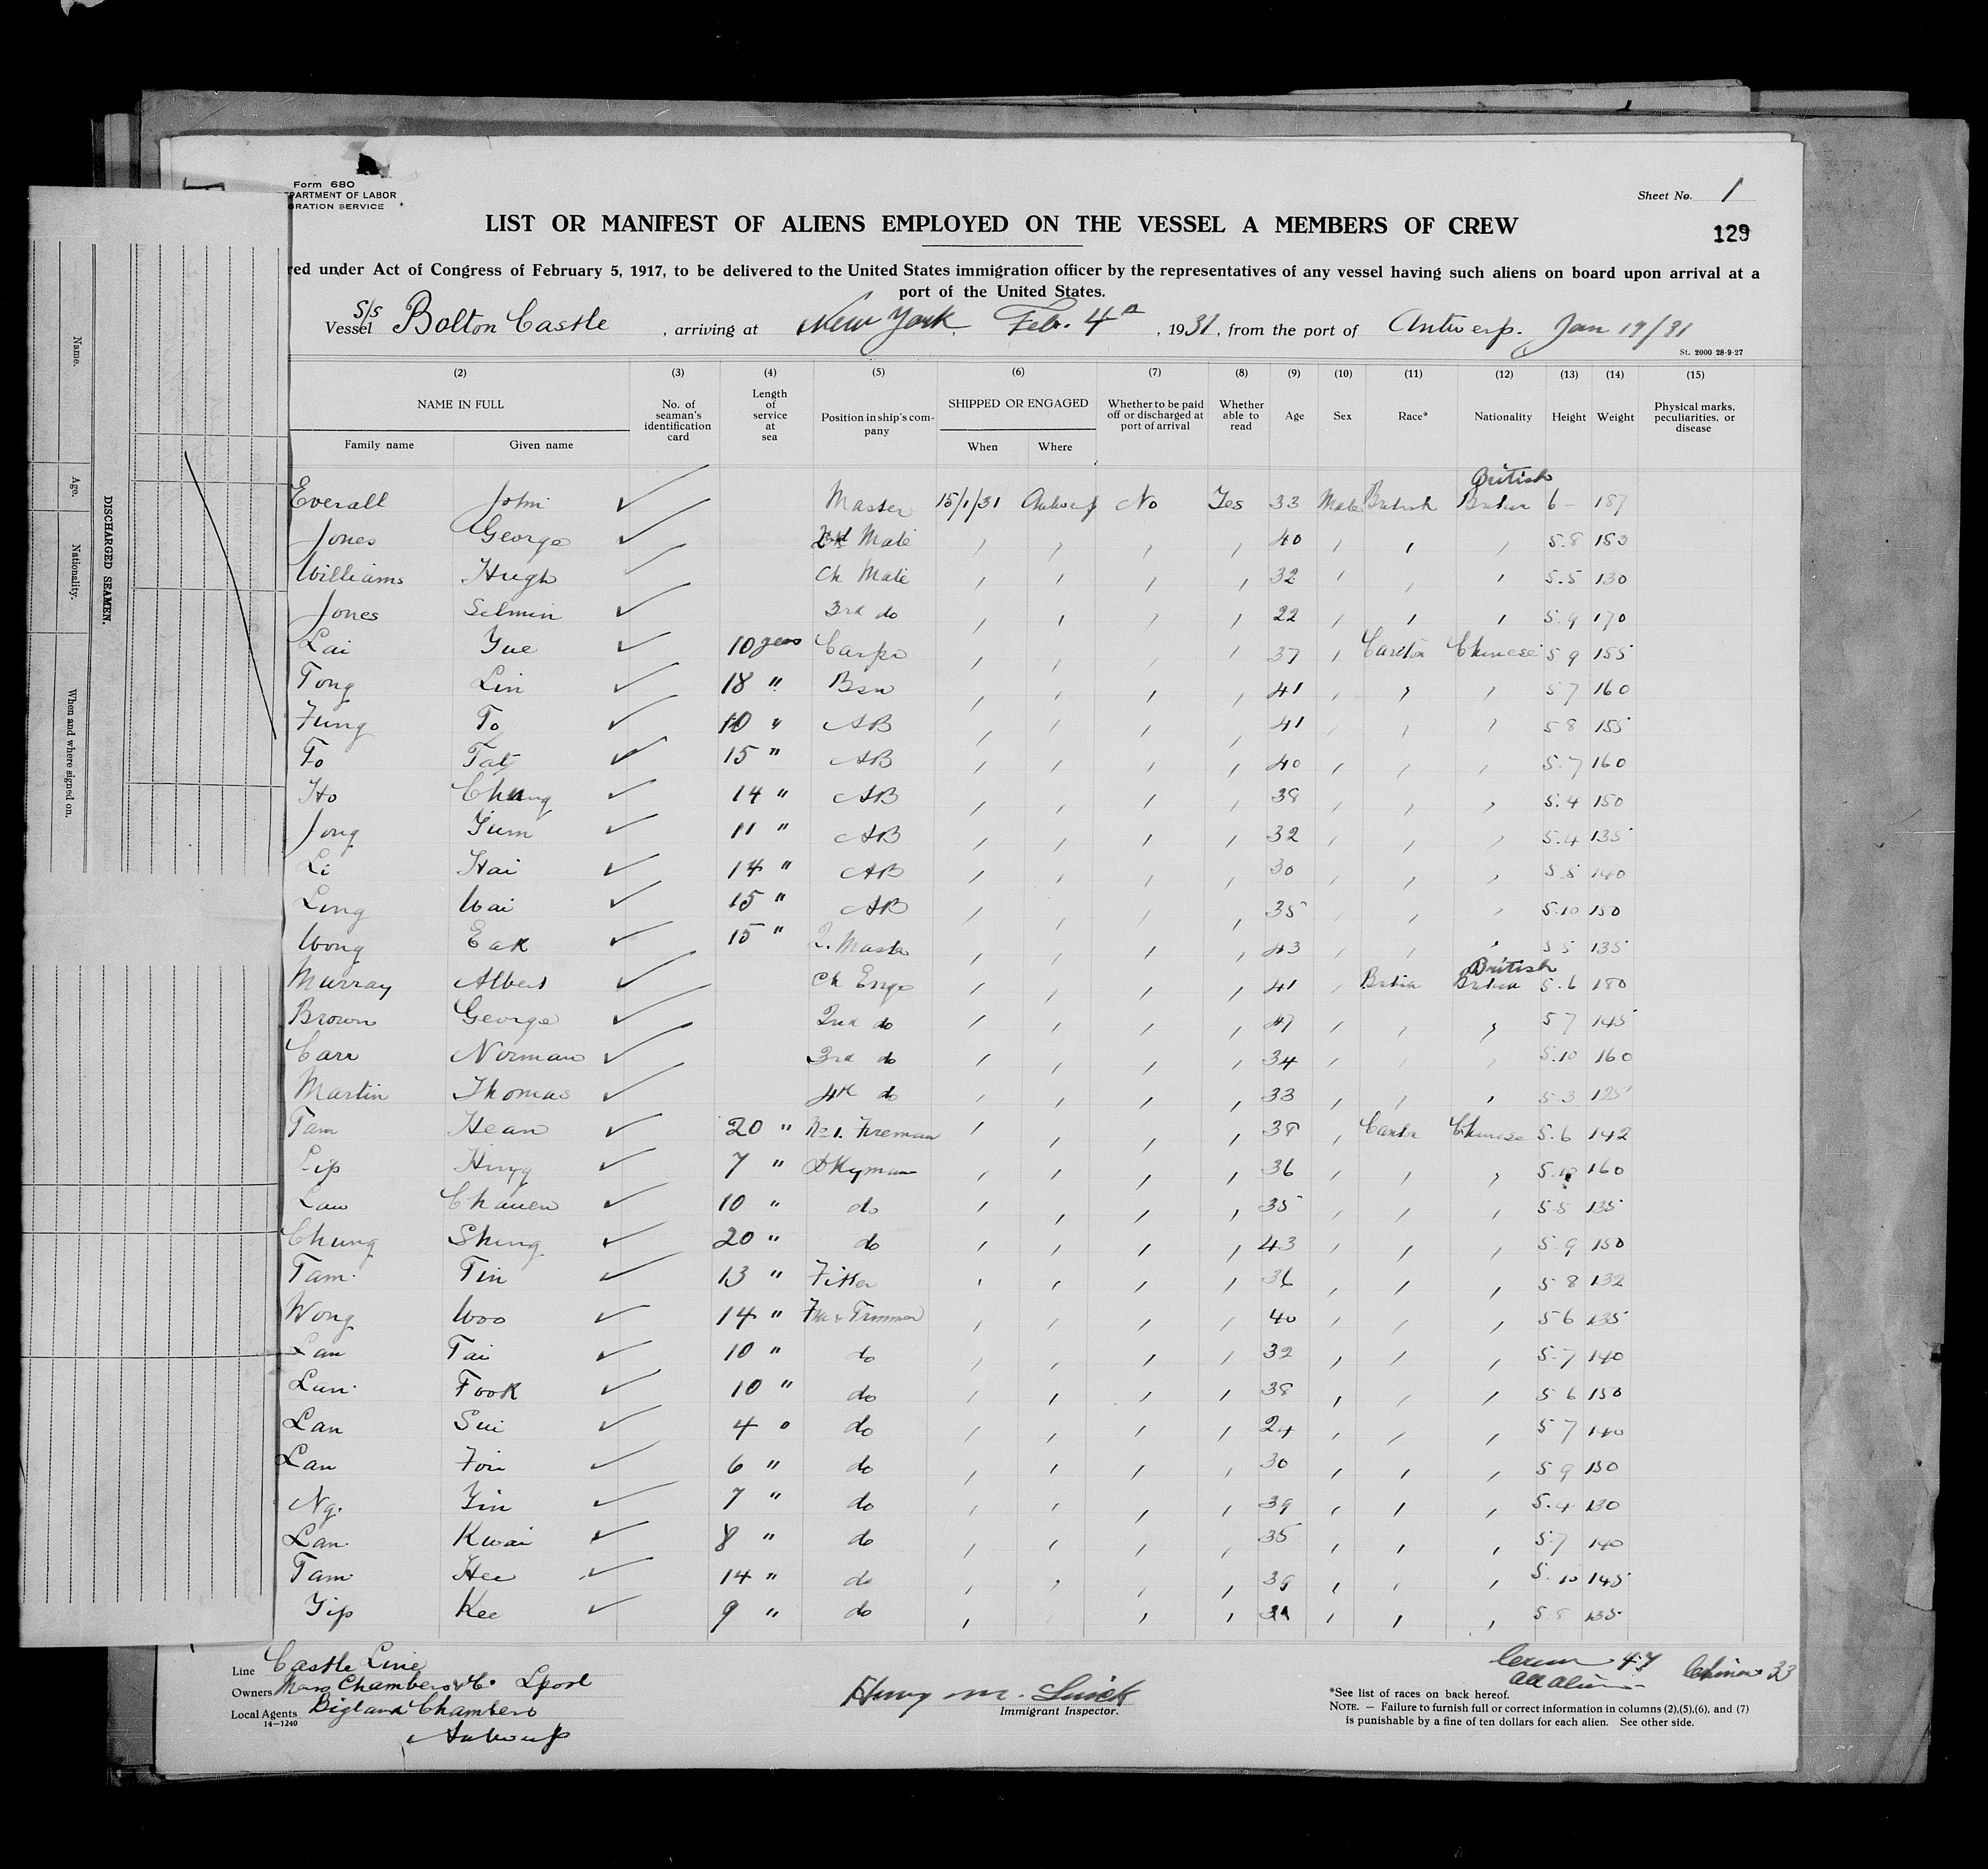 Form 680
PARTMENT OF LABOR
GRATION SERVICE
Sheet No. 1
LIST OR MANIFEST OF ALIENS EMPLOYED ON THE VESSEL A MEMBERS OF CREW
129
red under Act of Congress of February 5, 1917, to be delivered to the United States immigration officer by the representatives of any vessel having such aliens on board upon arrival at a
port of the United States.
S/S
Vessel Bolton Castle , arriving at New York, Feb. 4th , 1931, from the port of Antwerp. Jan 19/31
St. 2000 28-9-27
(2) (3) (4) (5) (6) (7) (8) (9) (10) (11) (12) (13) (14) (15)
NAME IN FULL No. of seaman's identification card Length of service at sea Position in ship's company SHIPPED OR ENGAGED Whether to be paid off or discharged at port of arrival Whether able to read Age Sex Race* Nationality Height Weight Physical marks, peculiarities, or disease
Family name Given name When Where
British
Everall John Master 15/1/31 Antwerp No Yes 33 Male British 6 - 187
Jones George 2nd Mate 40 5.8
Williams Hugh Ch Mate 32 5.5 130
Jones 3rd do 22 5.9 170
Lai Yue 10 years Carpr 37 Chinese 5 9 155
Tong Lin 18 " Bsn 41 5 7 160
Fung To 10 " AB 41 5 8 155
Fo 15 " AB 40 5.7 160
Ho Chung 14 " AB 38 5.4 150
Jong Yum 11 " AB 32 5.4 135
Li Hai 14 " AB 30 5 5 140
Ling Wai 15 " AB 35 5.10 150
Wong Eak 15 " Q. Master 43 5 5 135
British
Murray Albert Ch Engr 41 5.6 180
Brown George 2nd do 47 5 7 145
Carr Norman 3rd do 34 5.10 160
Martin Thomas 4th do 33 5 3 125
Tam Hean 20 " No 1. Fireman 38 Chinese 5.6 142
Hing 7 " DKyman 36 160
Law Chauen 10 " do 35 5.5 135
Chung Shing 20 " do 43 5.9 150
Tam. Tin 13 " Fitter 36 5 8 132
Wong Woo 14 " Fm & Trimmer 40 5 6 135
Lan Tai 10 " do 32 5.7 140
Lan. Fook 10 " do 38 5 6 150
Lan Sui 4 " do 24 5 7 140
Lan 6 " do 30 5 9 150
Ng. Yin 7 " do 39 5.4 130
Lan. Kwai 8 " do 35 5.7 140
Tam. Hee 14 " do 39 5.10 145
Yip Kee 9 " do 5.8 135
Line Castle Line
Owners Chambers & Co. Lpool
Local Agents Bigland Chambers
14-1240
Antwerp
Immigrant Inspector.
Crew 47
All alien
*See list of races on back hereof.
NOTE. — Failure to furnish full or correct information in columns (2),(5),(6), and (7)
is punishable by a fine of ten dollars for each alien. See other side.
DISCHARGED SEAMEN.
Name.
Age.
Nationality.
When and where signed on.